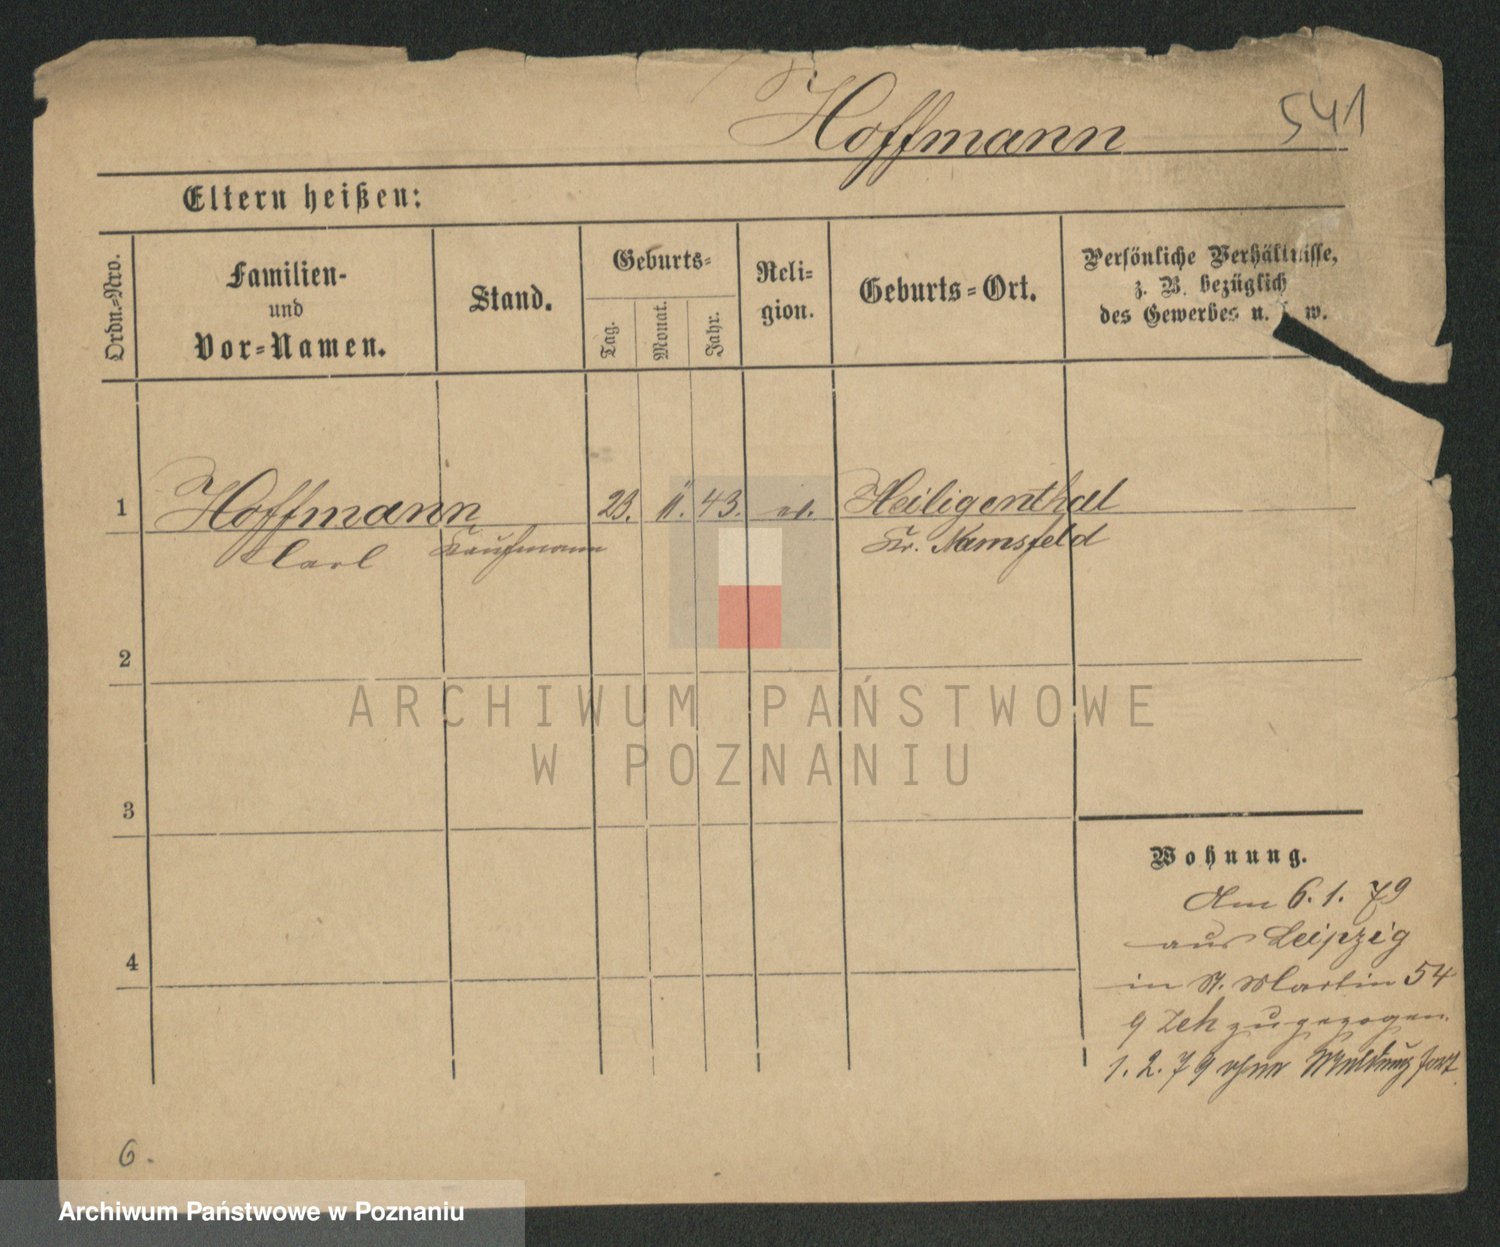 Hoffmann 541
Eltern heißen:
Ordn.-Nro.
Familien-
und
Vor-Namen.
Stand.
Geburts-
Tag.
Monat.
Jahr.
Reli-
gion.
Geburts-Ort.
Persönliche Verhältnisse,
z. B. bezüglich
des Gewerbes u. w.
1 Hoffmann 23. 11. 43. ev. Heiligenthal
Carl Kaufmann Kr. Mansfeld
2
3
4
Wohnung.
Am 6. 1. 79
aus Leipzig
in St. Martin 54
zugezogen.
1. 2. 79 ohne Meldung fort
6.
ARCHIWUM PAŃSTWOWE
W POZNANIU
Archiwum Państwowe w Poznaniu